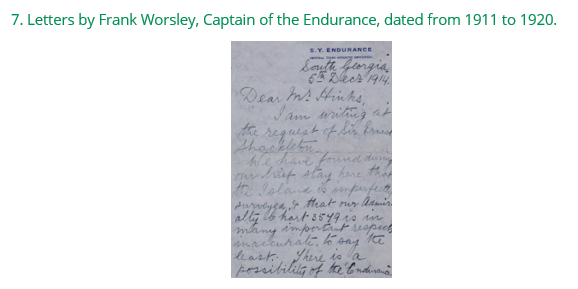 7. Letters by Frank Worsley, Captain of the Endurance, dated from 1911 to 1920.
S.Y. ENDURANCE
South Georgia
5th Decr 1914.
Dear Mr Hinks,
I am writing at
the request of Sir Ernest
Shackleton.
We have found during
our brief stay here that
the Island is imperfectly
surveyed, & that our Admir-
alty Chart 3579 is in
many important respects
inaccurate, to say the
least. There is a
possibility of the Endurance